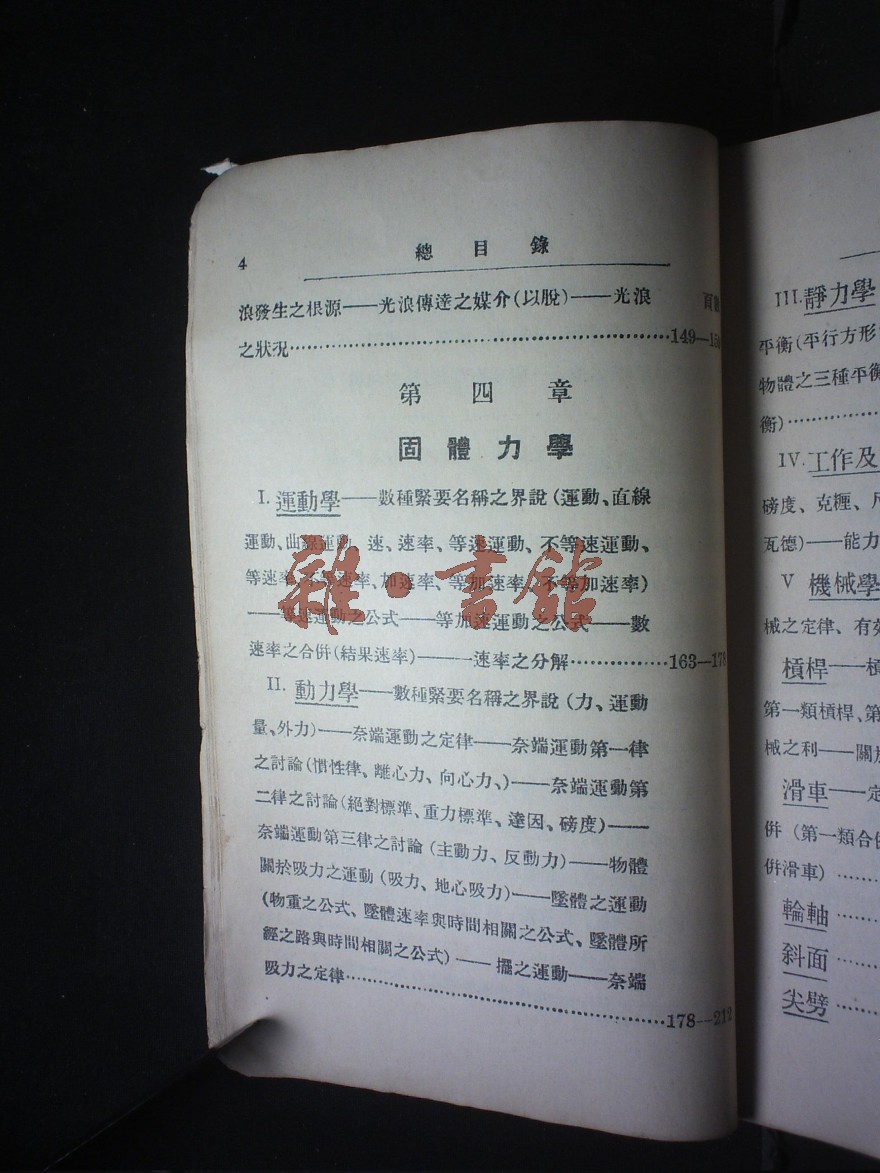 4 總目錄
頁數
浪發生之根源——光浪傳達之媒介(以脫)——光浪
之狀况……149—150
第四章
固體力學
I. 運動學——數種緊要名稱之界說(運動、直線
運動、曲線運動、速、速率、等速運動、不等速運動、
等速率、不等速率、加速率、等加速率、不等加速率)
——等速運動之公式——等加速運動之公式——數
速率之合併(結果速率)———速率之分解……163—178
II. 動力學——數種緊要名稱之界說(力、運動
量、外力)——奈端運動之定律——奈端運動第一律
之討論(慣性律、離心力、向心力、)——奈端運動第
二律之討論(絕對標準、重力標準、達因、磅度)——
奈端運動第三律之討論(主動力、反動力)——物體
關於吸力之運動(吸力、地心吸力)——墜體之運動
(物重之公式、墜體速率與時間相關之公式、墜體所
經之路與時間相關之公式)——擺之運動——奈端
吸力之定律……178—212
雜·書館
III. 靜力學
平衡(平行方形
物體之三種平衡
衡)……
IV. 工作及
磅度、克糎、
瓦德)——能力
V 機械學
械之定律、有效
槓桿——槓
第一類槓桿、第
械之利——關於
滑車——定
併(第一類合併
併滑車)……
輪軸……
斜面……
尖劈……